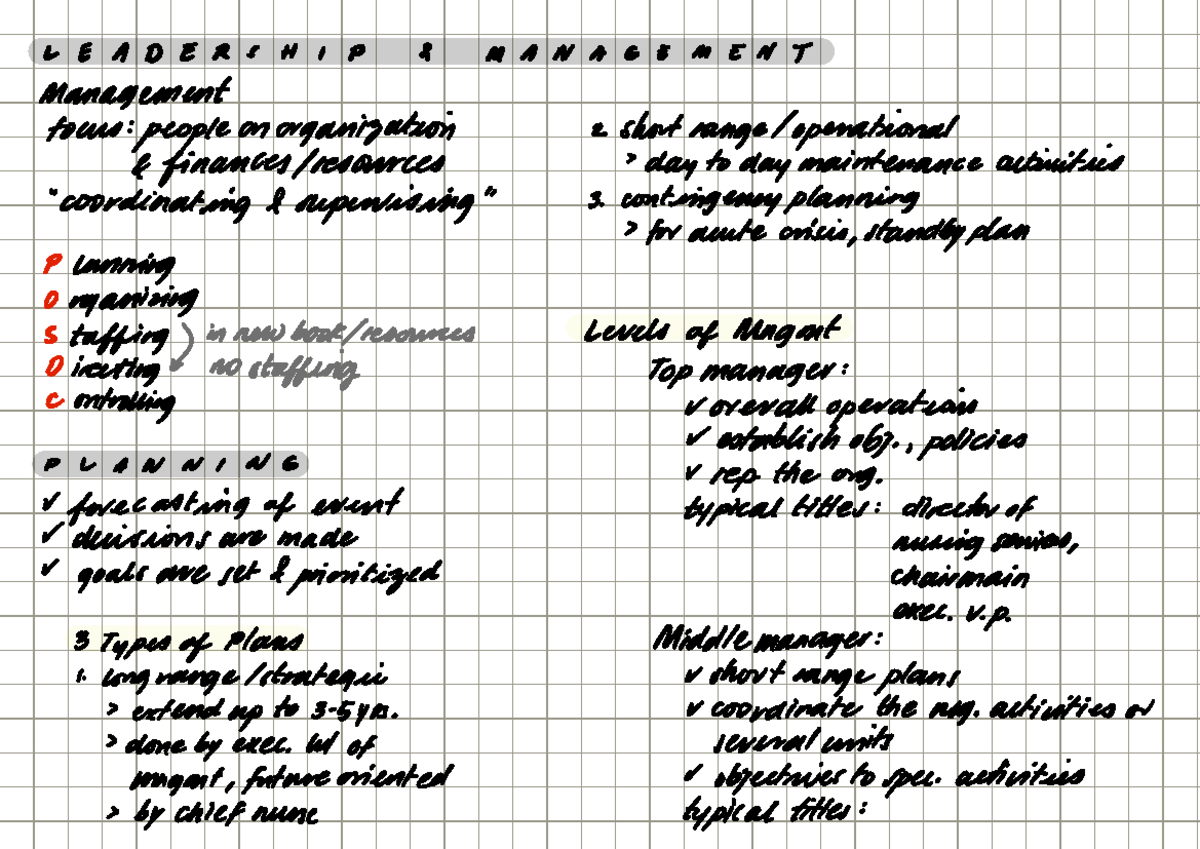 LEADERSHIP & MANAGEMENT
Management
focus: people on organization
& finances/resources
"coordinating & supervising"
Planning
Organizing
Staffing
in new book/resources
Directing
no staffing
Controlling
PLANNING
✓ forecasting of event
✓ decisions are made
✓ goals are set & prioritized
3 Types of Plans
1. long range/strategic
> extend up to 3-5 yrs.
> done by exec. lvl of
mngmt, future oriented
> by chief nurse
2. short range/operational
> day to day maintenance activities
3. contingency planning
> for acute crisis, standby plan
Levels of Mngmt
Top manager:
✓ overall operation
✓ establish obj., policies
✓ rep the org.
typical titles: director of
nursing service,
chairmain
exec. v.p.
Middle manager:
✓ short range plans
✓ coordinate the nsg. activities or
several units
✓ objectives to spec. activities
typical titles: